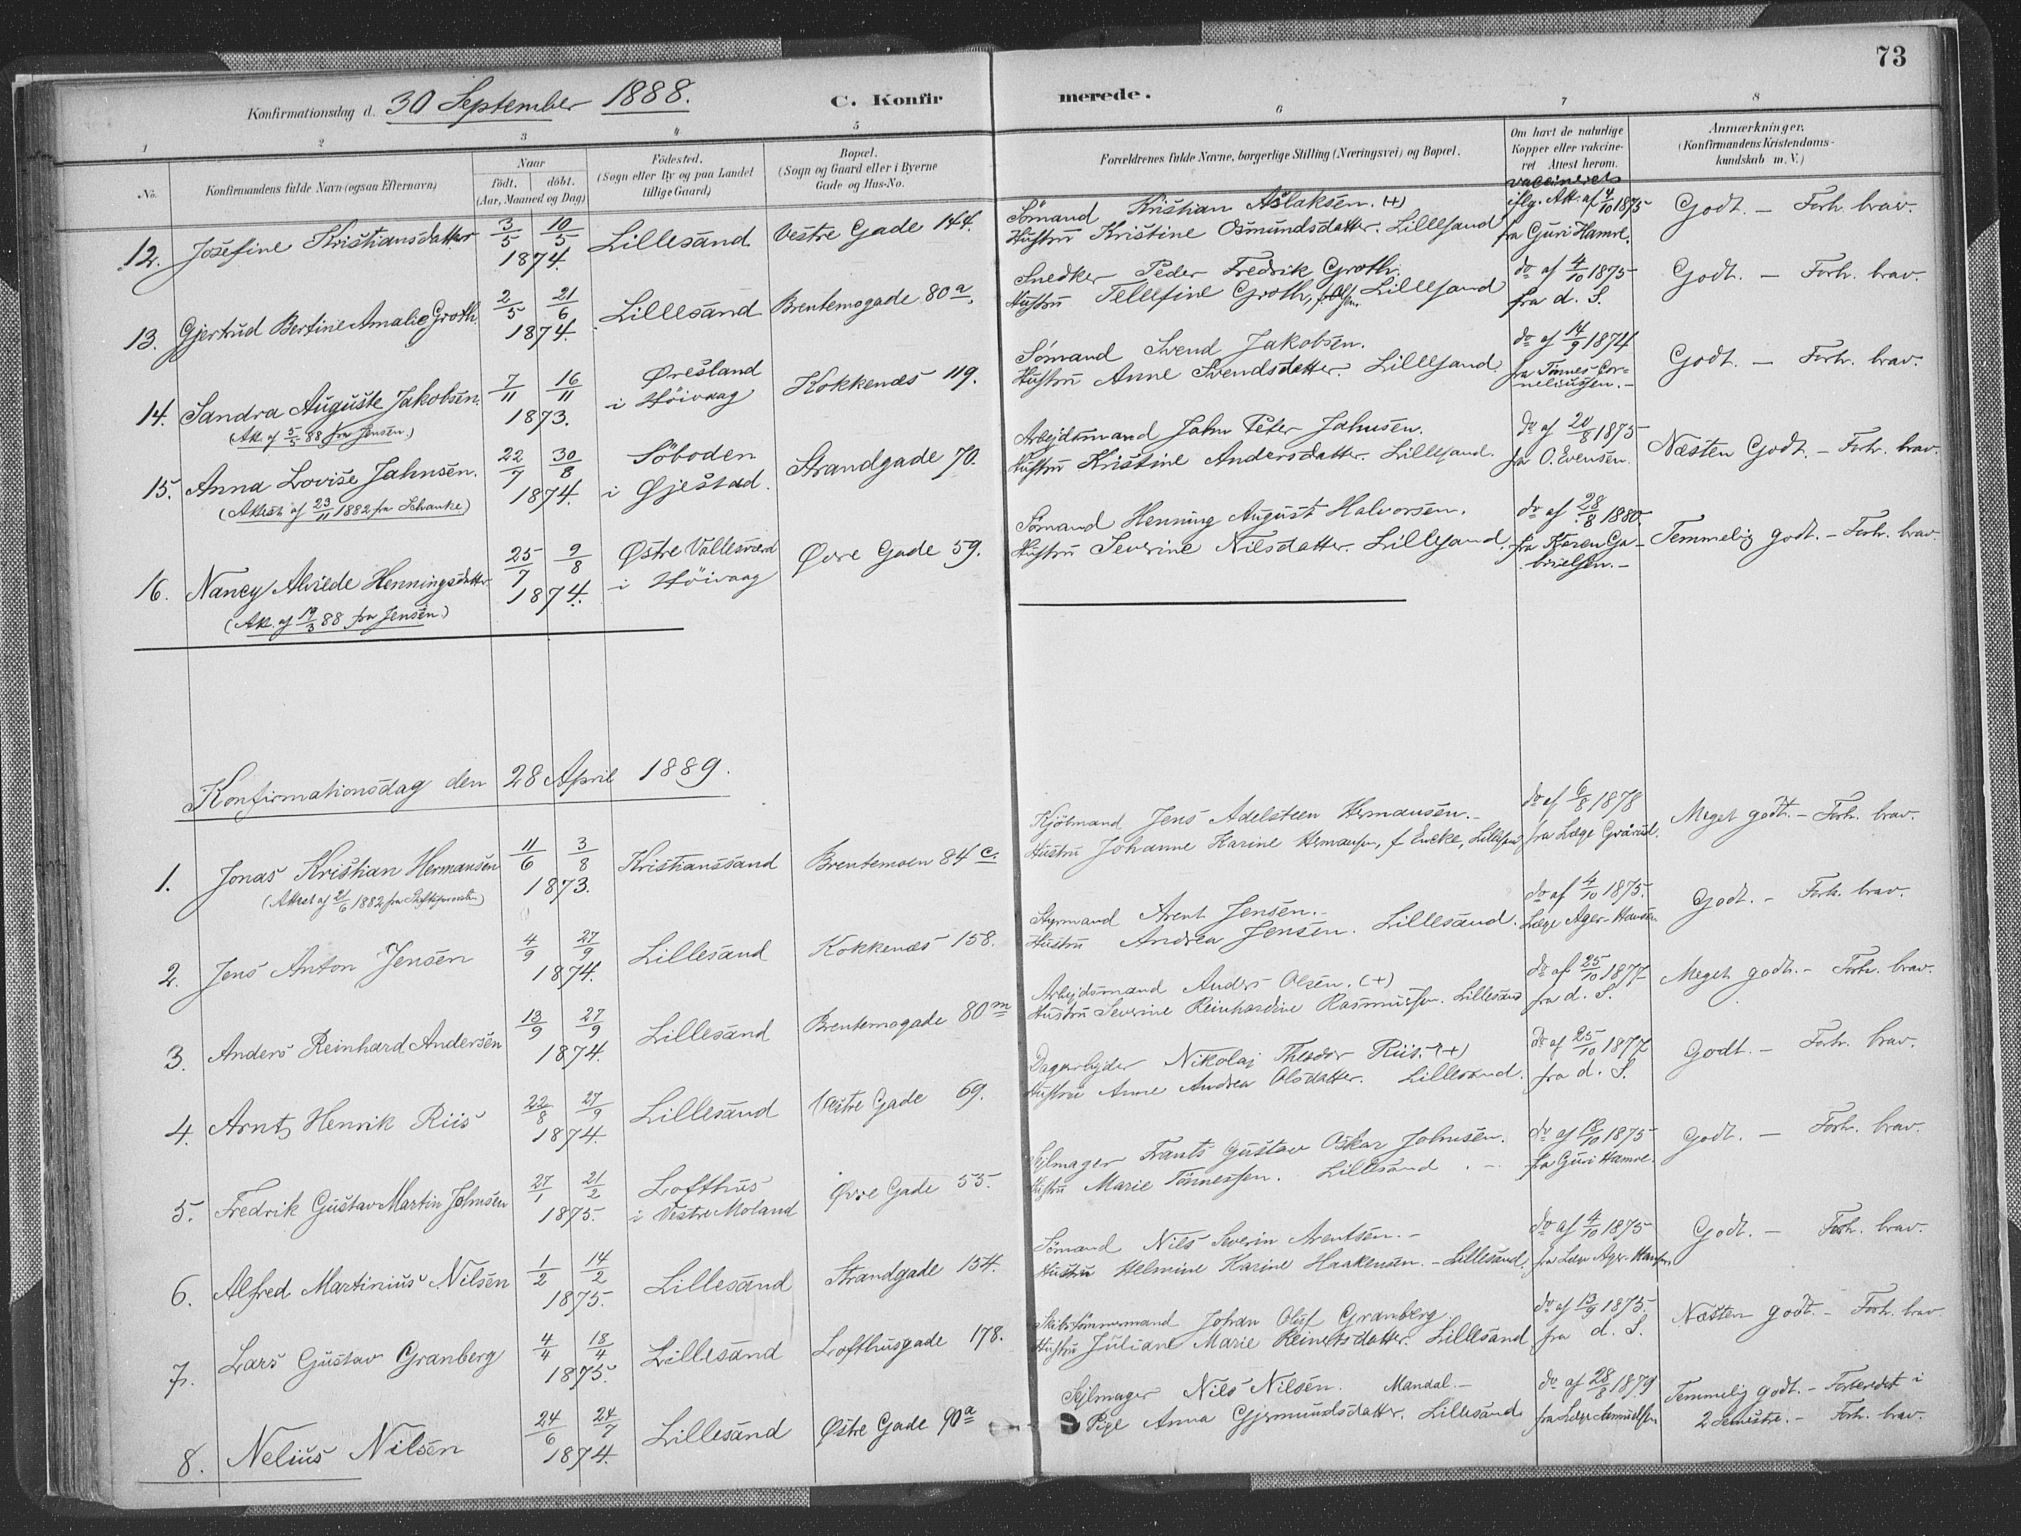 73
Konfirmationsdag d. 30 September 1888. C. Konfirmerede.
1 2 3 4 5 6 7 8
No. Konfirmandens fulde Navn (ogsaa Efternavn) Naar født. døbt. (Aar, Maaned og Dag) Fødested. (Sogn eller By og paa Landet tillige Gaard) Bopæl. (Sogn og Gaard eller i Byerne Gade og Hus-No. Forældrenes fulde Navne, borgerlige Stilling (Næringsvei) og Bopæl. Om havt de naturlige Kopper eller vakcineret Attest herom. Anmærkninger. (Konfirmandens Kristendomskundskab m. V.)
12. Josefine Kristiansdatter 3/5 10/5 1874. Lillesand Vestre Gade 144. Sømand Kristian Aslaksen. (+)
Hustru Kristine Osmundsdatter. Lillesand vaccineret iflg. Att. af 4/10 1875 fra Guri Hamre. Godt. — Forh. brav.
13. Gjertrud Bertine Amalie Groth 2/5 21/6 1874. Lillesand Brentemogade 80a. Snedker Peder Fredrik Groth.
Hustru Telefine Groth, f. Olsen Lillesand do af 4/10 1875 fra d. S. Godt. — Forh. brav.
14. Sandra Auguste Jakobsen. 7/11 16/11 1873. Øresland i Høivaag Kokkenæs 119. Sømand Svend Jakobsen.
Hustru Anne Svendsdatter. Lillesand do af 14/9 1874 fra Tønnes Corneliussen. Godt. — Forh. brav.
(Att. af 5/5 88 fra Jensen.)
15. Anna Lovise Jahnsen. 22/7 30/8 1874. Søboden i Øjestad. Strandgade 70. Arbejdsmand Jahn Peter Jahnsen.
Hustru Kristine Andersdatter. Lillesand. do af 20/8 1875 fra O. Evensen. Næsten Godt. — Forh. brav.
(Attest af 23/11 1882 fra Schanke)
16. Nancy Alvilde Henningsdatter 25/7 9/8 1874. Østre Vallesværd i Høivaag Øvre Gade 59. Sømand Henning August Halvorsen.
Hustru Severine Nilsdatter. Lillesand do af 28/8 1880 fra Karen Gabrielsen. — Temmelig godt. — Forh. brav.
(Att. af 19/3 88 fra Jensen.)
Konfirmationsdag den 28 April 1889.
1. Jonas Kristian Hermansen 11/6 3/8 1873. Kristianssand Brentemoen 84 c. Kjølmand Jens Adelsteen Hermansen.
Hustru Johanne Karine Hermansen, f. Encke, Lillesand do af 6/8 1878 fra Læge Grårud. Meget godt. — Forh. brav.
(Attest af 21/6 1882 fra Stiftsprovsten)
2. Jens Anton Jensen 4/9 27/9 1874. Lillesand Kokkenæs 158. Styrmand Arent Jensen.
Hustru Andrea Jensen. Lillesand. do af 4/10 1875. Læge Ager-Hansen Godt. — Forh. brav.
3. Anders Reinhard Andersen 13/9 27/9 1874. Lillesand Brentemogade 80m Arbejdsmand Anders Olsen. (+)
Hustru Severine Reinhardine Rasmussen. Lillesand do af 25/10 1877 fra d. S. Meget godt. — Forh. brav.
4. Arnt Henrik Riis 22/8 27/9 1874. Lillesand Vestre Gade 69. Dagarbejder Nikolaj Theodor Riis. (+)
Hustru Anne Andrea Olsdatter. Lillesand. do af 25/10 1877 fra d. S. Godt. — Forh. brav.
5. Fredrik Gustav Martin Johnsen 27/1 21/2 1875. Lofthus i Vestre Moland Øvre Gade 55. Sejlmager Frants Gustav Oskar Johnsen.
Hustru Marie Tønnessen. Lillesand. do af 18/10 1875 fra Guri Hamre. Godt. — Forh. brav.
6. Alfred Martinius Nilsen 1/2 14/2 1875. Lillesand Strandgade 154. Sømand Nils Severin Arentsen.
Hustru Helmine Karine Haakensen. — Lillesand. do af 4/10 1875 fra Læge Ager-Hansen Godt. — Forh. brav.
7. Lars Gustav Granberg 4/4 18/4 1875. Lillesand Lofthusgade 178. Skibstømmermand Johan Oluf Granberg
Hustru Juliane Marie Reinertsdatter. Lillesand do af 13/9 1875. fra d. S. Næsten godt. — Forh. brav
8. Nelius Nilsen 24/6 24/7 1874. Lillesand Østre Gade 90a Sejlmager Nils Nilsen. Mandal.
Pige Anna Gjermundsdatter. Lillesand do af 28/8 1879 fra Læge Samuelsen Temmelig godt. — Forberedet i 2 Semestre. — Forh. brav.